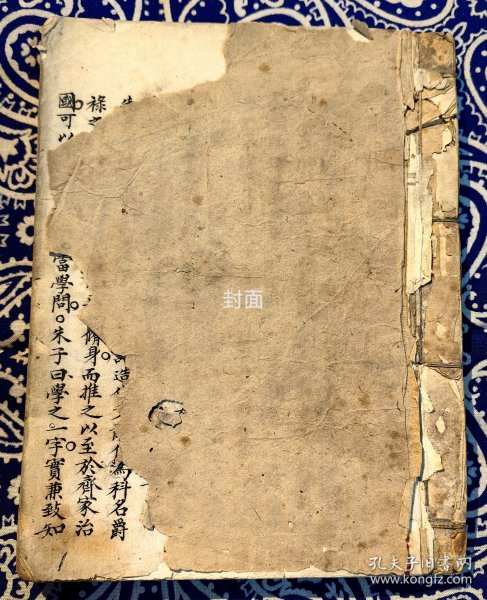 為科名爵
祿之
脩身而推之以至於齊家治
國可以
當學問。朱子曰學之一字實兼致知
封面
孔夫子旧书网
www.kongfz.com